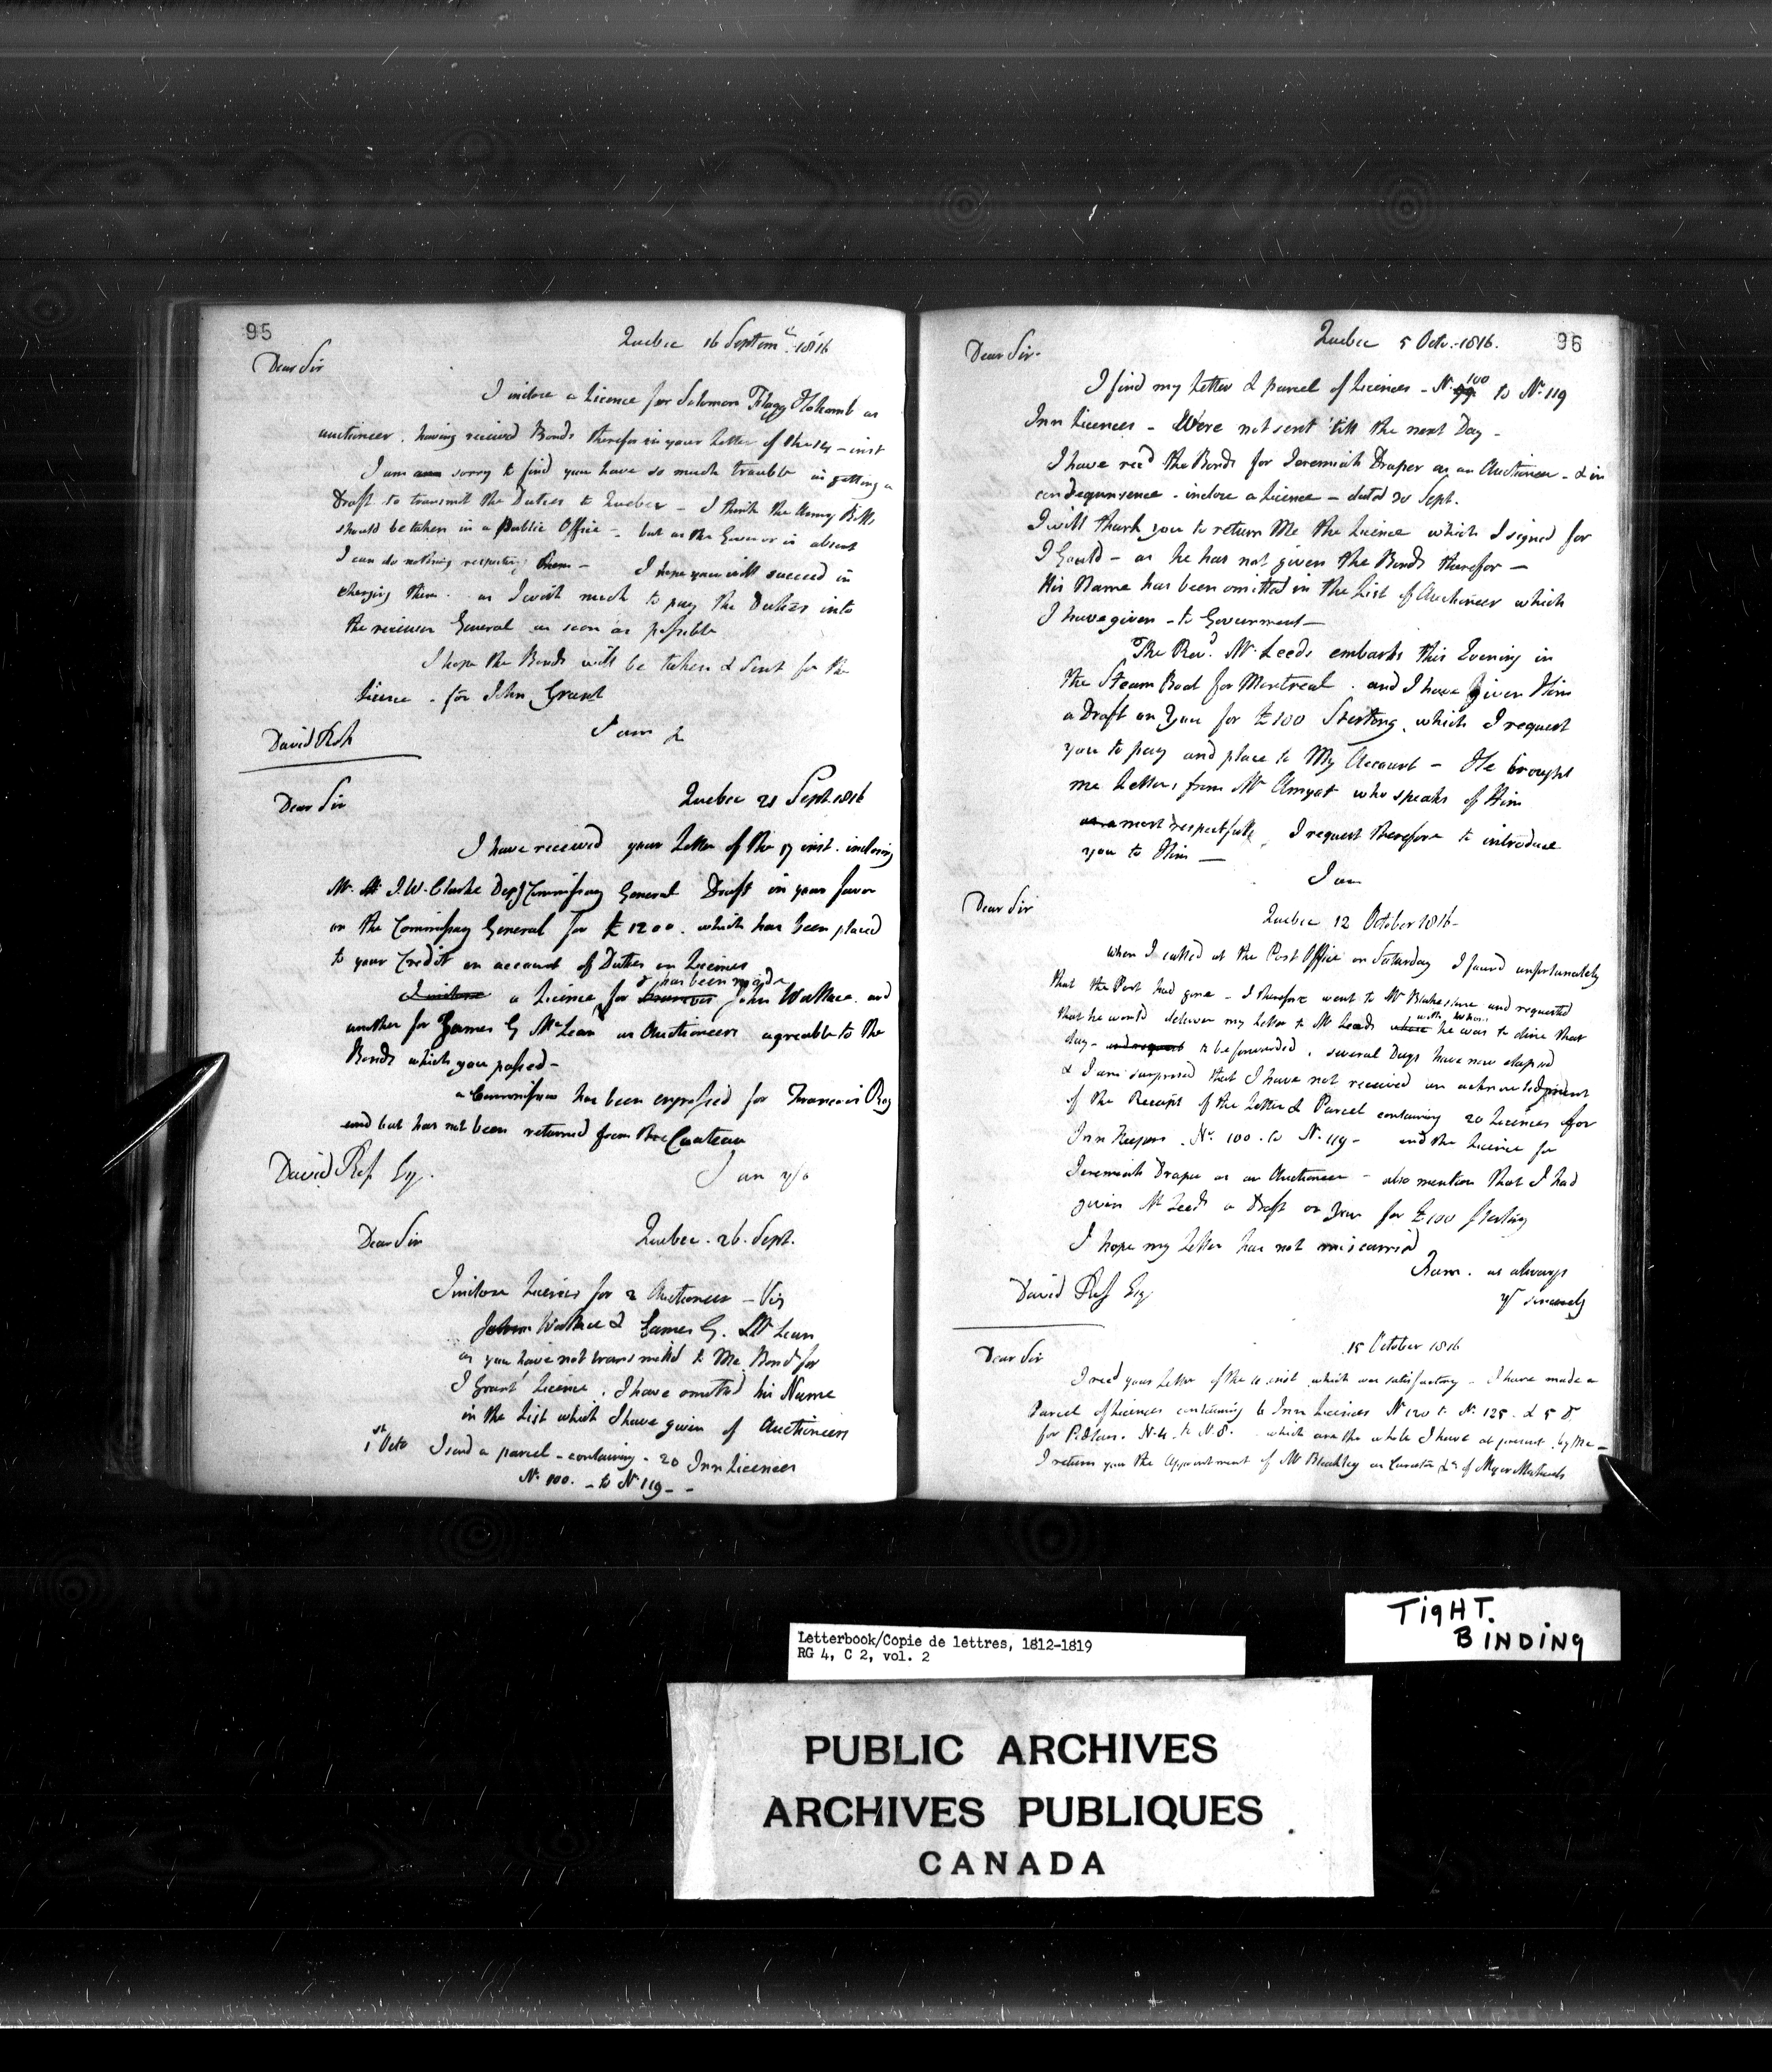 95
Quebec 16 Septemr. 1816
Dear Sir
I inclose a Licence for Solomon Flagg Holcomb as
auctioneer. having received Bonds therefor in your Letter of the - inst
I am sorry to find you have so much trouble in getting a
Draft to transmit the Duties to Quebec - I think the Army Bills
should be taken in a Public Office - but as the Governor is absent
I can do nothing respecting them - I hope you will succeed in
changing them. as I wish much to pay the Duties into
the receiver General as soon as possible
I hope the Bonds will be taken & sent for the
licence. for John Grant
I am &
David Ross
Quebec 21 Sept. 1816
Dear Sir
I have received your Letter of the 17 inst. inclosing
Mr. I. W. Clarke Depy Commissary General Draft in your favor
on the Commissary General for £1200. which has been placed
to your Credit on account of Duties on Licences
has been made
I inclose a Licence for John Wallace and
another for James G McLean as Auctioneers agreeable to the
Bonds which you passed -
a Commission has been engrossed for Francois Roy
and but has not been returned from the Chateau
I am &c
David Ross Esq.
Quebec. 26. Sept.
Dear Sir
I inclose Licences for 2 Auctioneers - Viz
John Wallace & James G. Mc Lean
as you have not transmitted to Me Bond for
I Grant Licence. I have omitted his Name
in the List which I have given of Auctioneers
1st Octo I send a parcel - containing - 20 Inn Licences
No 100. - to No 119 - -
Quebec 5 Octr. 1816.
96
Dear Sir.
I find my Letter & parcel of Licences - No. 99 100 to No. 119
Inn Licences - Were not sent 'till the next Day -
I have recd the Bonds for Jeremiah Draper as an Auctioneer - & in
consequence - inclose a Licence - dated 30 Sept.
I will thank you to return Me the Licence which I signed for
I Gould - as he has not given the Bonds therefor -
His Name has been omitted in the List of Auctioneer which
I have given - to Government -
The Revd. Mr. Leeds embarks this Evening in
the Steam Boat for Montreal. and I have given Him
a Draft on You for £100 Sterling, which I request
you to pay and place to My Account - He brought
me Letters from Mr Amyot who speaks of Him
as a most respectfully, I request therefore to introduce
you to Him -
I am
Dear Sir
Quebec 12 October 1816 -
When I called at the Post Office on Saturday I found unfortunately
that the Post had gone - I therefore went to Mr and requested
that he would deliver my Letter to Mr Leeds where with whom he was to dine that
day - and request to be forwarded, several Days have now elapsed
& I am surprised that I have not received an acknowledgment
of the Receipt of the Letter & Parcel containing 20 Licences for
Inn Keepers. No. 100. to No. 119 - and the Licence for
Jeremiah Draper as an Auctioneer - also mention that I had
given Mr Leeds a Draft on You for £100 Sterling
I hope my Letter has not miscarried
I am. as always
yr sincerely
David Ross Esq
15 October 1816
Dear Sir
I recd your Letter of the inst which was satisfactory - I have made a
Parcel of Licences containing 6 Inn Licences No 120 to No. 125. & 5 Do
for Pedlars. No 4. to No 8. which are the whole I have at present by Me -
I return you the Appointment of Mr Bleakley as Curator &c of Myer Michaels
TigHT.
BINDiNg
Letterbook/Copie de lettres, 1812-1819
RG 4, C 2, vol. 2
PUBLIC ARCHIVES
ARCHIVES PUBLIQUES
CANADA